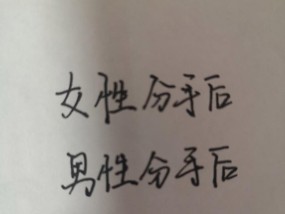 女性分手后
男性分手后